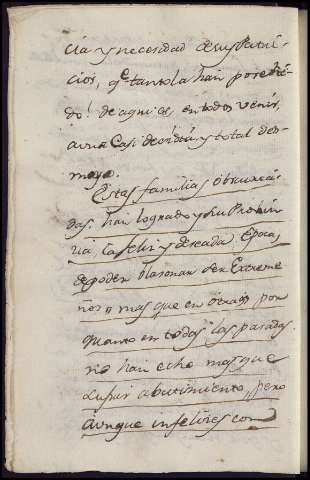 cia y necesidad de sus Patri-
cios, qe tanto la han
do! de aqui es, en todos venir,
a una casi decidida y total des-
maya.
Estas familias obscureci-
das. han logrado y su Probin-
cia, la feliz y deseada Epoca,
de poder blasonar ser Extreme
ños mas que en otras por
quanto en todas las pasadas.
no han echo mas que
Lusir abatimiento, pero
aunque infelices con